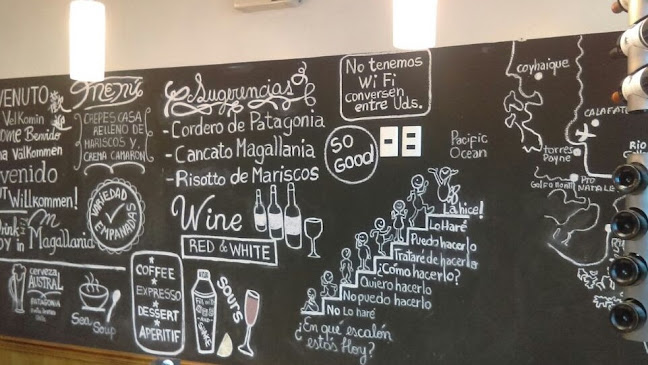 VENUTO
Velkomin
OME Benvido
na Välkommen
venido
UT Willkommen!
Drink
in Magallania
Menú
CREPES CASA
RELLENO DE
MARISCOS Y
CREMA CAMARON
VARIEDAD
EMPANADAS
cerveza
AUSTRAL
PATAGONIA
Sea
Soup
Sugerencias
-Cordero de Patagonia
-Cancato Magallania
-Risotto de Mariscos
Wine
RED & WHITE
COFFEE
EXPRESSO
DESSERT
APERITIF
SOURS
No tenemos
WiFi
conversen
entre Uds.
SO
Good!
La hice!
Lo Haré
Puedo hacerlo
Trataré de hacerlo
¿Cómo hacerlo?
Quiero hacerlo
No puedo hacerlo
No Lo haré
¿En qué escalón
estás Hoy?
Pacific
Ocean
coyhaique
CALAFATE
torres
Payne
Pto
NATALE
RIO